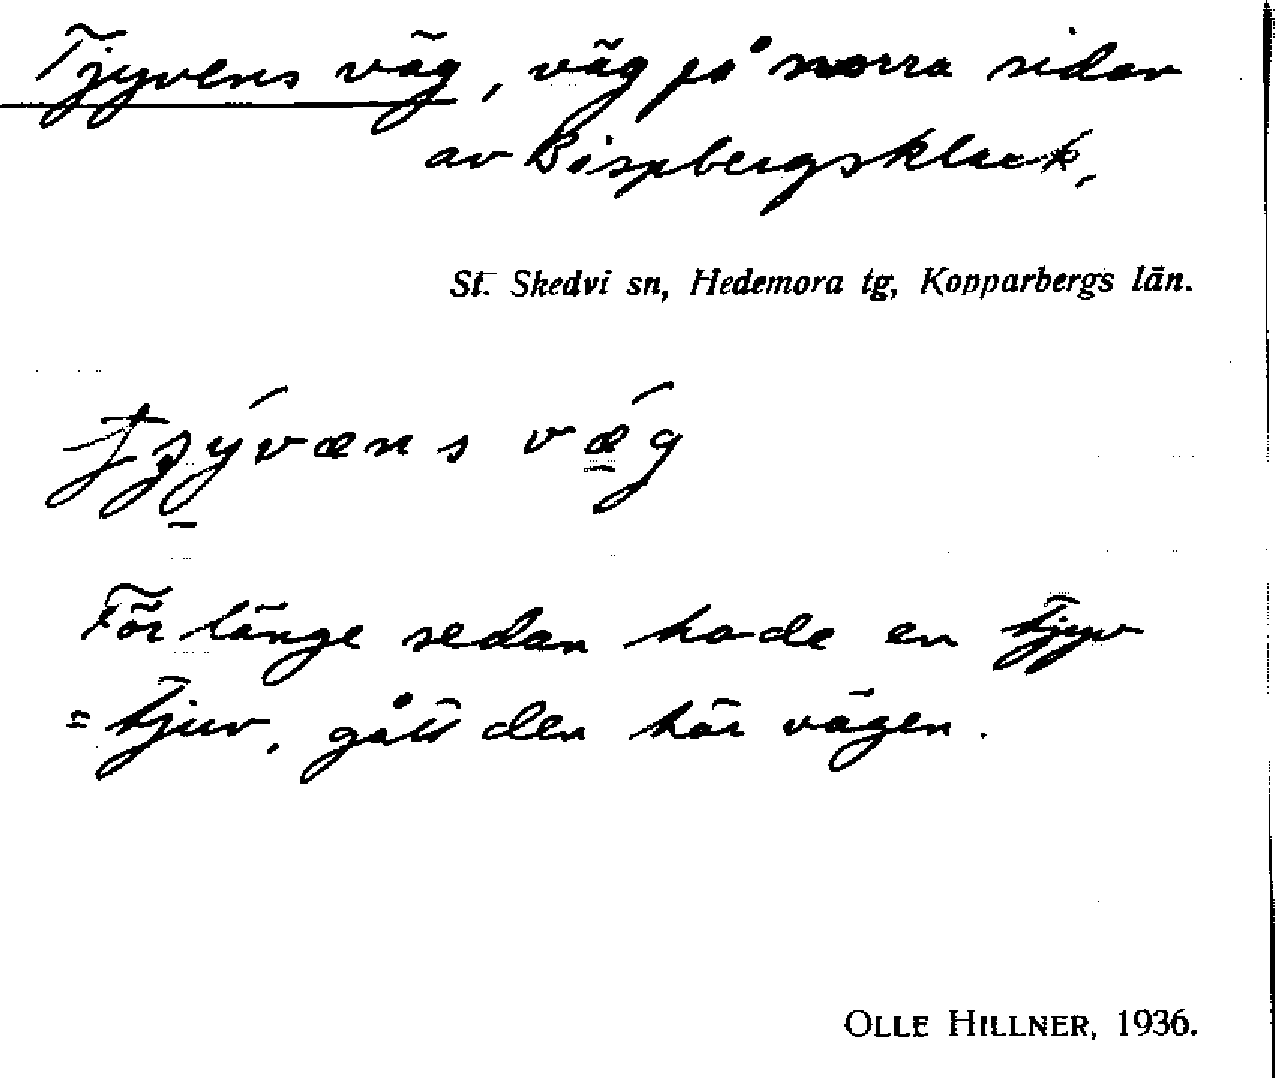 Tjyvens väg, väg på norra sidan
av Bispbergsklack,
St. Skedvi sn, Hedemora tg, Kopparbergs län.
väg
För länge sedan hade en tjyv
= tjuv, gått den här vägen.
OLLE HILLNER, 1936.